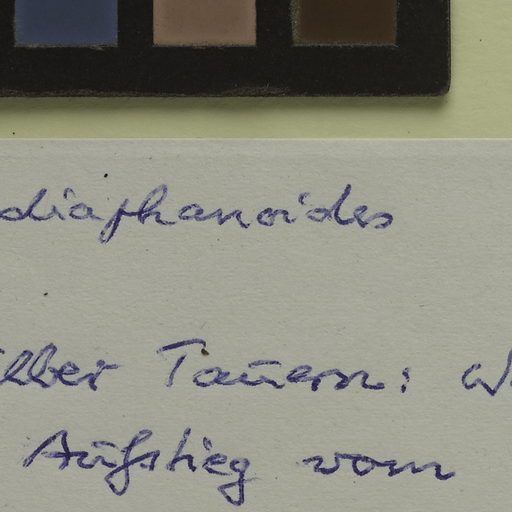 diaphanoides
Tauern:
Aufstieg vom